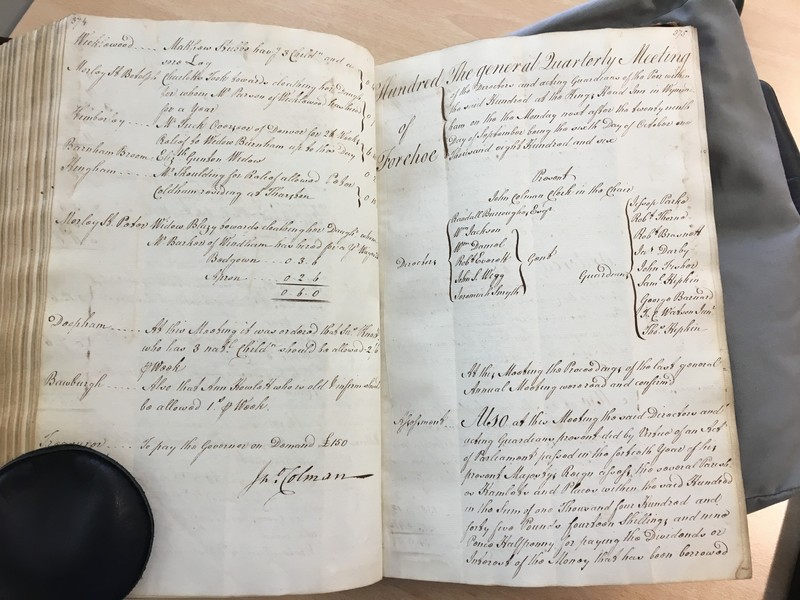 374
Wicklewood .... Mathew Frisbe hav.g 3 Child.n and a
sore Leg
Morley St. Botolp's Charlotte Took towards cloathing her Daugh.
for whom Mr. Parson of Wicklewood
for a Year
Kimberley .... Mr. Overseer of for 26 Weeks
Relief to Widow Burnham up to this Day
Barnham Broom Eliz.th Gunton Widow
Hingham .... Mr. Shoulding for Relief allowed Peter
Coldham residing at
Morley St. Peter Widow Blazy towards cloathing her Daugh.r whom
Mr. Barker of Windham has hired for a Y.r
Bedgown .. 0 3 6
Apron .... 0 2 6
0 6 0
Deopham .... At this Meeting it was ordered that Jn.o
who has 3 nat.l Child.n should be allowed 2/6
℘ Week
Bawburgh .... Also that Ann Howlett who is old & infirm should
be allowed 1.s ℘ Week.
Treasurer .. To pay the Governor on Demand £150
Jn.o Colman
375
Hundred of Forehoe
The general Quarterly Meeting
of the Directors and acting Guardians of the Poor within
the said Hundred at the Kings Head Inn in Wymon-
ham on the Monday next after the twenty ninth
Day of September being the sixth Day of October one
Thousand eight Hundred and six
Present
John Colman Clerk in the Chair
Directors
Randall Burroughes Esq.r
W.m Jackson
W.m Daniel
Rob.t Everett
John S. Wegg
Jeremiah Smyth
Gent
Guardians
Jessop Parke
Rob.t Thorne
Rob.t Brasnett
Ja.s Darby
John Fisher
Sam.l Hipkin
George Barnard
T. C. Watson Jun.r
Tho.s Hipkin
At this Meeting the Proceedings of the last general
Annual Meeting were read and confirm'd
Assessment. Also at this Meeting the said Directors and
acting Guardians present did by Virtue of an Act
of Parliament passed in the fortieth Year of his
present Majestys Reign assess the several Parish-
es Hamlets and Places within the said Hundred
in the Sum of one Thousand four Hundred and
forty five Pounds fourteen Shillings and nine
Pence Halfpenny for paying the Dividends or
Interest of the Money that has been borrowed